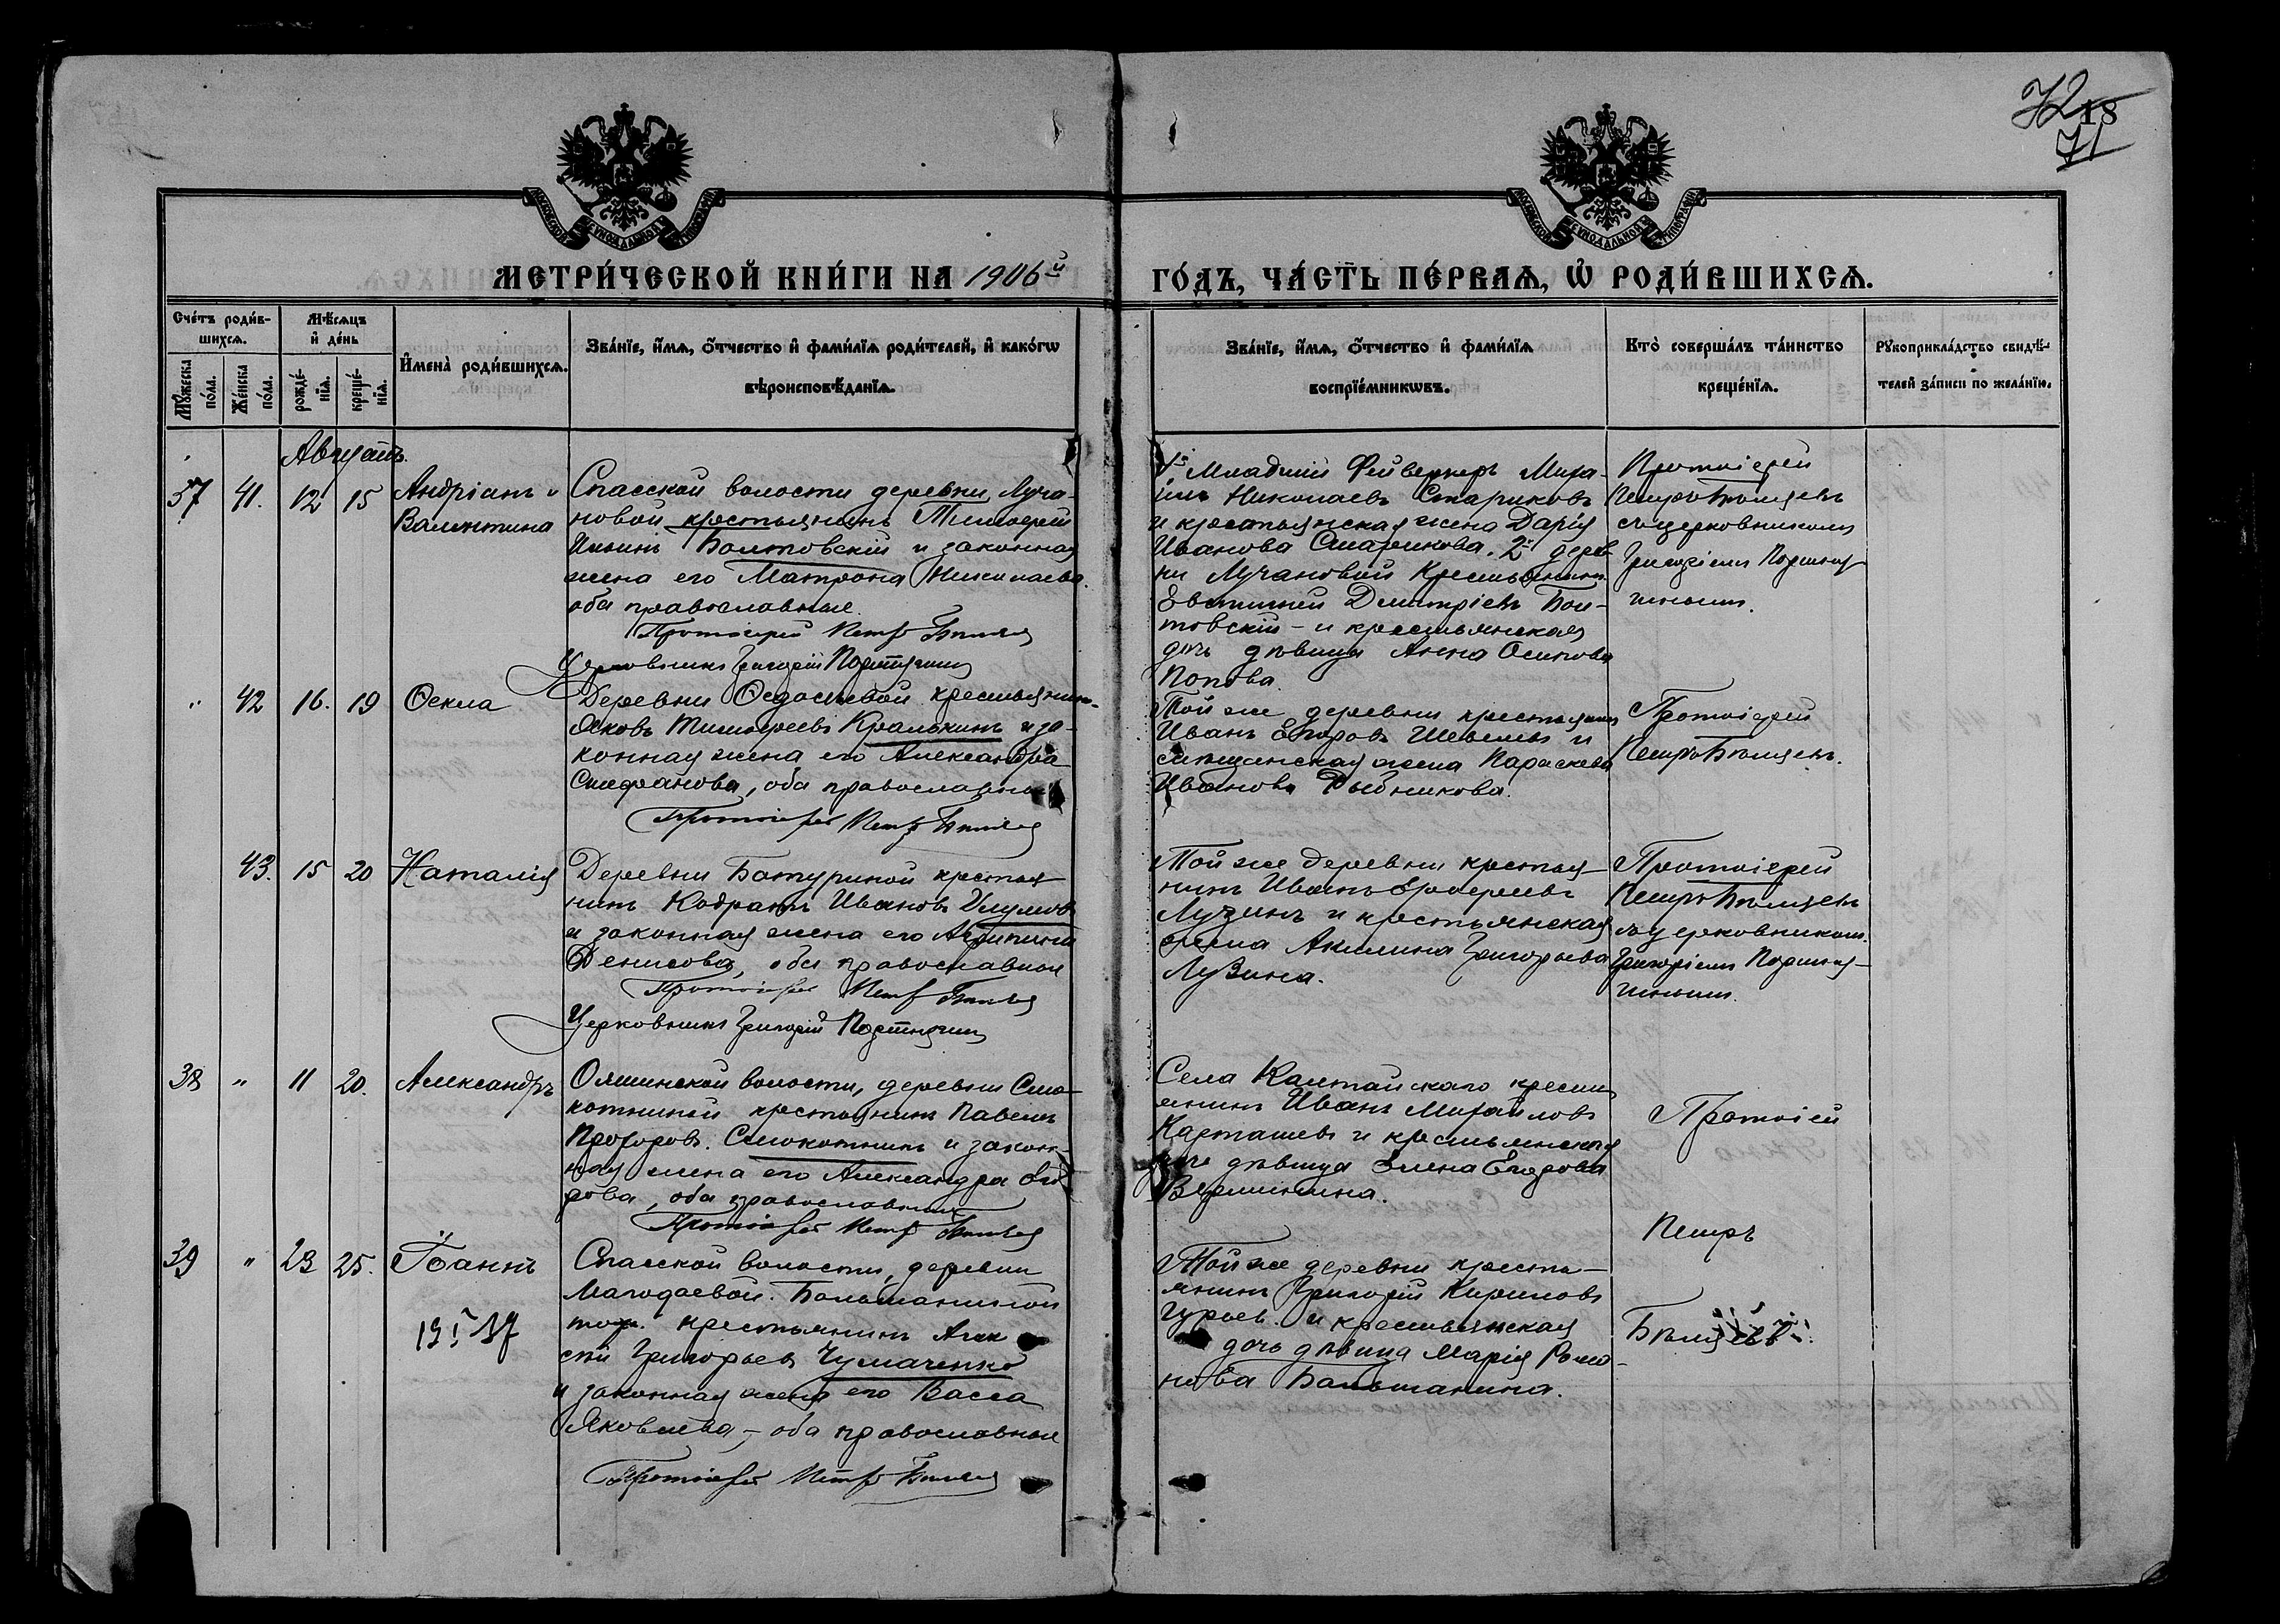 72 18
71
МОСКОВСКОЙ СѴНОДАЛЬНОЙ ТИПОГРАФІИ
МОСКОВСКОЙ СѴНОДАЛЬНОЙ ТИПОГРАФІИ
МЕТРИ́ЧЕСКОЙ КНИ́ГИ НА 1906й
ГО́ДЪ, ЧА́СТЬ ПЕ́РВАѦ, Ѽ РОДИ́ВШИХСѦ.
Сче́тъ роди́в-
шихсѧ.
Мѣ́сѧцъ
и҆ де́нь
Мꙋ́жеска
по́ла.
Же́нска
по́ла.
рожде́-
нїѧ.
креще́-
нїѧ.
И҆мена̀ роди́вшихсѧ.
Зва́нїе, и҆́мѧ, ѻ҆́тчество и҆ фами́лїѧ роди́телей, и҆ како́гѡ
вѣроисповѣ́данїѧ.
Зва́нїе, и҆́мѧ, ѻ҆́тчество и҆ фами́лїѧ
воспрїе́мникѡвъ.
Кто̀ соверша́лъ та́инство
креще́нїѧ.
Рꙋкоприкла́дство свидѣ́-
телей за́писи по жела́нїю.
Августъ.
37 41. 12 15 Андріанъ и
Валентина
Спасской волости деревни Луча-
новой крестьянинъ Тимофей
Ильинъ Болтовскій и законная
жена его Матрона Николаева.
оба православные.
Протоіерей Петръ Бѣляевъ
Церковникъ Григорій Портнягинъ
1е Младшій Фейверкеръ Миха-
илъ Николаевъ Стариковъ
и крестьянская жена Дарія
Иванова Старикова. 2е дерев
ни Лучановой крестьянинъ
Евтихей Димитріевъ Бол-
товскій - и крестьянская
дочь дѣвица Анна Осипова
Попова.
Протоіерей
Петръ Бѣляевъ
съ церковникомъ
Григоріемъ Портняг
инымъ.
" 42 16. 19 Ѳекла
Деревни Ѳедосѣевой крестьянинъ
Яковъ Тимофеевъ Кралькинъ и за-
конная жена его Александра
Стефанова, оба православные
Протоіерей Петръ Бѣляевъ
Той же деревни крестьянинъ
Иванъ Егоровъ Шевелевъ и
мѣщанская жена Параскева
Иванова Рыбникова.
Протоіерей
Петръ Бѣляевъ.
43. 15 20 Наталія
Деревни Батуриной крестья-
нинъ Кодратъ Ивановъ
и законная жена его Агрипина
Денисова, оба православные
Протоіерей Петръ Бѣляевъ
Церковникъ Григорій Портнягинъ
Той же деревни крестья-
нинъ Иванъ Ерофеевъ
Лузинъ и крестьянская
жена Акилина Григорьева
Лузина.
Протоіерей
Петръ Бѣляевъ
съ церковникомъ
Григоріемъ Портняг-
инымъ.
38 " 11 20. Александръ
Ояшинской волости, деревни Смо-
котиной крестьянинъ Павелъ
Прохоровъ. Смокотнинъ и закон-
ная жена его Александра Его
рова, оба православные
Протоіерей Петръ Бѣляевъ
Села Калтайскаго кресть
янинъ Иванъ Михайловъ
Карташевъ и крестьянская
дочь дѣвица Елена Егорова
Вершинина.
Протоіей
Петръ
Бѣляевъ.
39 " 23 25. Іоаннъ
19 I 37
Спасской волости, деревни
Магодаевой. Большаниной
тож. крестьянинъ Алек
сѣй Григорьевъ Чумаченко
и законная жена его Васса
Яковлева, - оба православные
Протоіерей Петръ Бѣляевъ
Той же деревни кресть-
янинъ Григорій Кириловъ
Гурьевъ и крестьянская
дочь дѣвица Марія Рома-
нова Большанина.